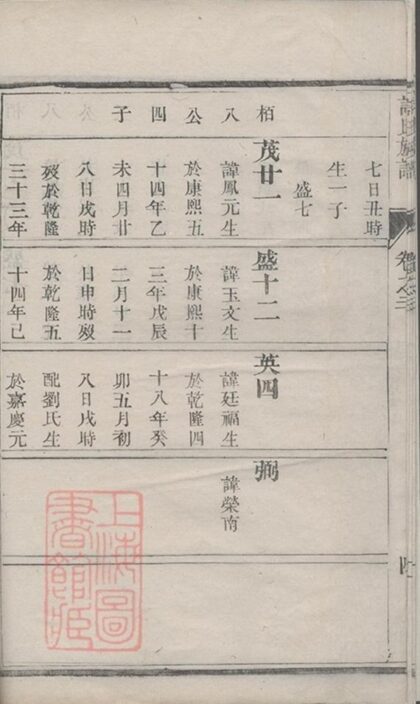 七日丑時
生一子
盛七
柏八公四子
茂廿一
諱鳳元生
於康熙五
十四年乙
未四月廿
八日戌時
歿於乾隆
三十三年
盛十二
諱玉文生
於康熙十
三年戊辰
二月十一
日申時歿
於乾隆五
十四年己
英四
諱廷福生
於乾隆四
十八年癸
卯五月初
八日戌時
配劉氏生
於嘉慶元
諱榮南
上海圖
書館藏